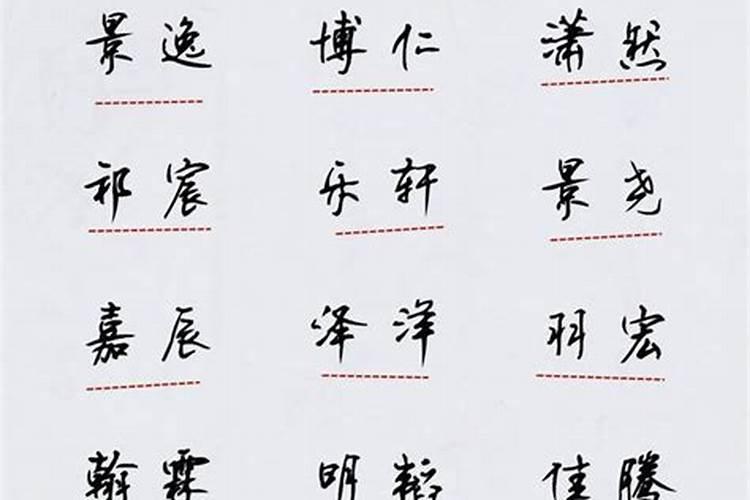 景逸 博仁 潇然
祁宸 乐轩 景尧
嘉辰 泽洋 羽宏
翰霖 明韬 佳腾